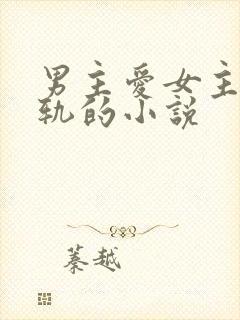 男主愛女主
軌的小說
蓁越